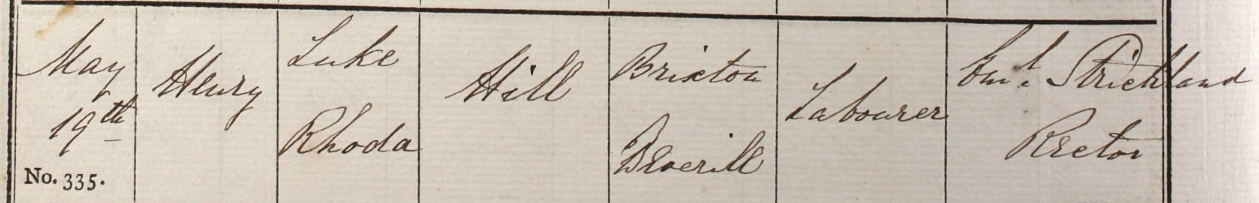 May
19th
No. 335.
Henry
Luke
Rhoda
Hill
Brixton
Deverill
Labourer
Strickland
Rector